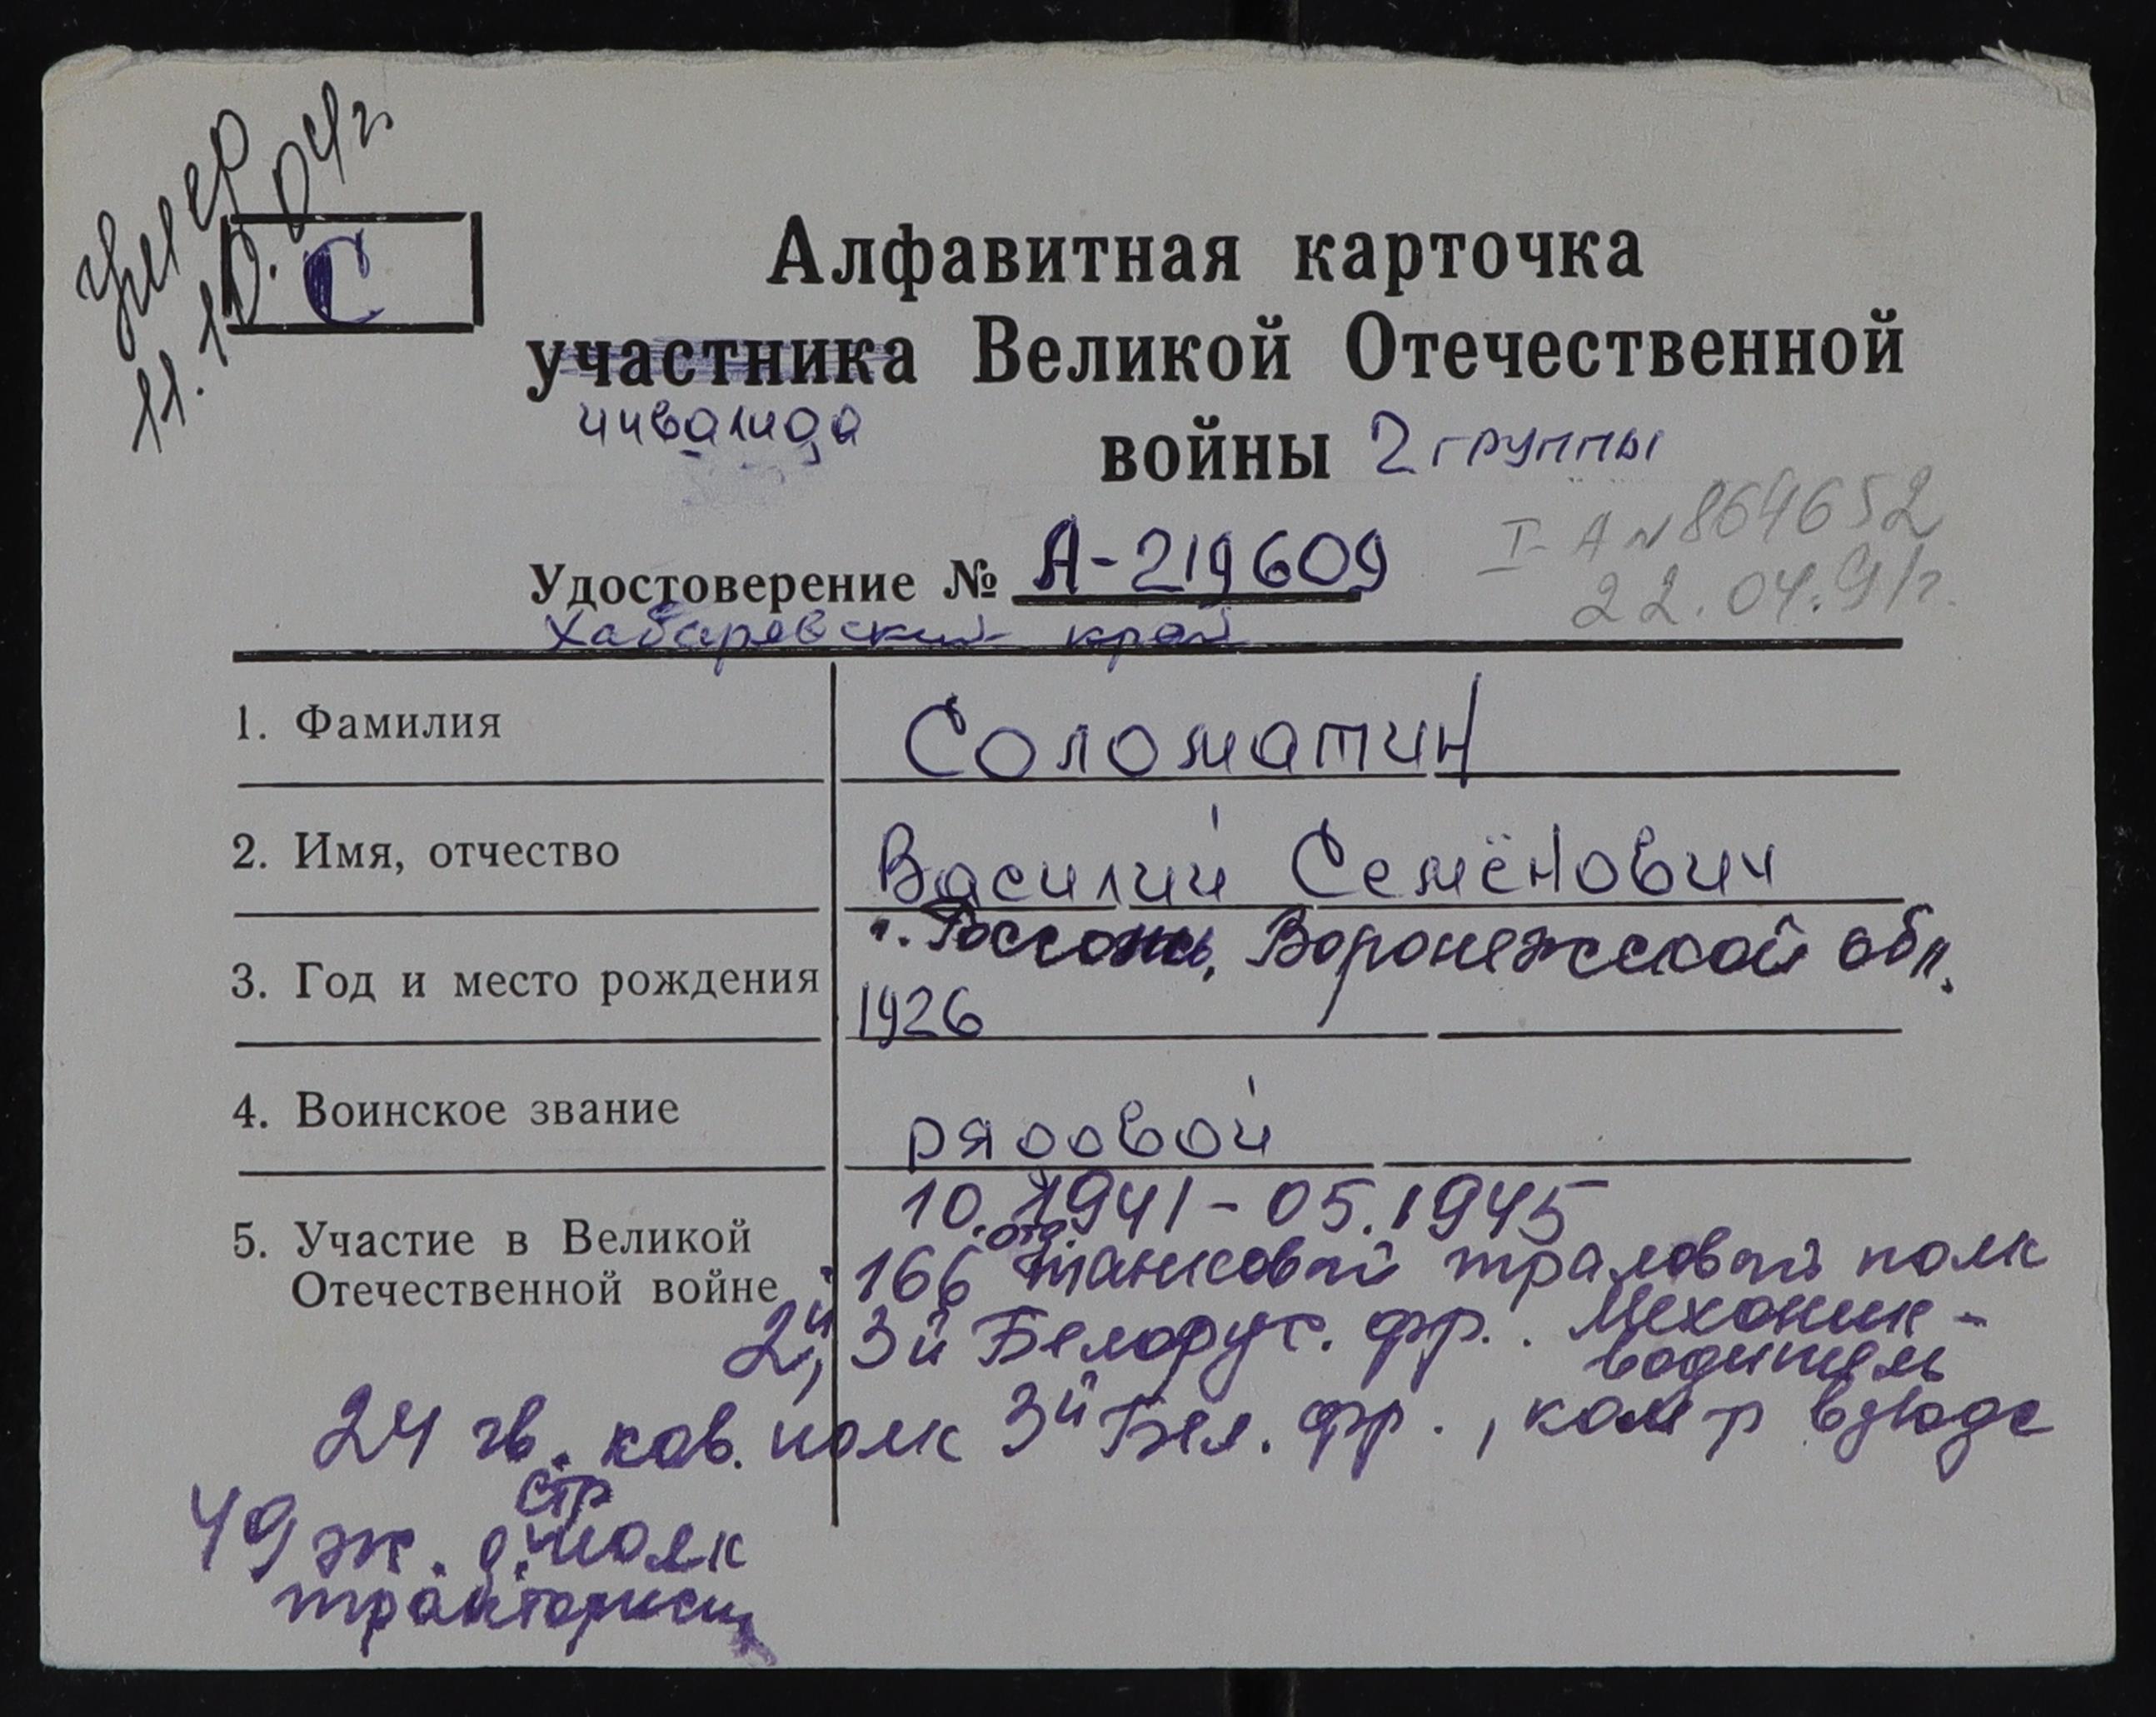 умер
11.10.04г.
С
Алфавитная карточка
участника Великой Отечественной
инвалида
войны 2 группы
I- А N 864652
22.04.91г.
Удостоверение № А-219609
Хабаровский край
1. Фамилия Соломатин
2. Имя, отчество Василий Семёнович
г. Россошь, Воронежской обл.
3. Год и место рождения 1926
4. Воинское звание рядовой
10.1941-05.1945
5. Участие в Великой
Отечественной войне
166 отд танковый траловый полк
2й, 3й Белорус. фр. Механик-
водитель
24 гв. кав. полк 3й Бел. фр., ком-р взвода
49 ж.д. стр полк
тракторист